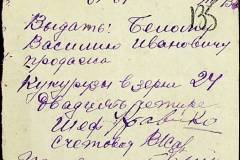 135
Выдать: Белому
Василию Ивановичу
продавса
Кукурузы в зерне 24
двадцать четыре
Шеф
Счетовод